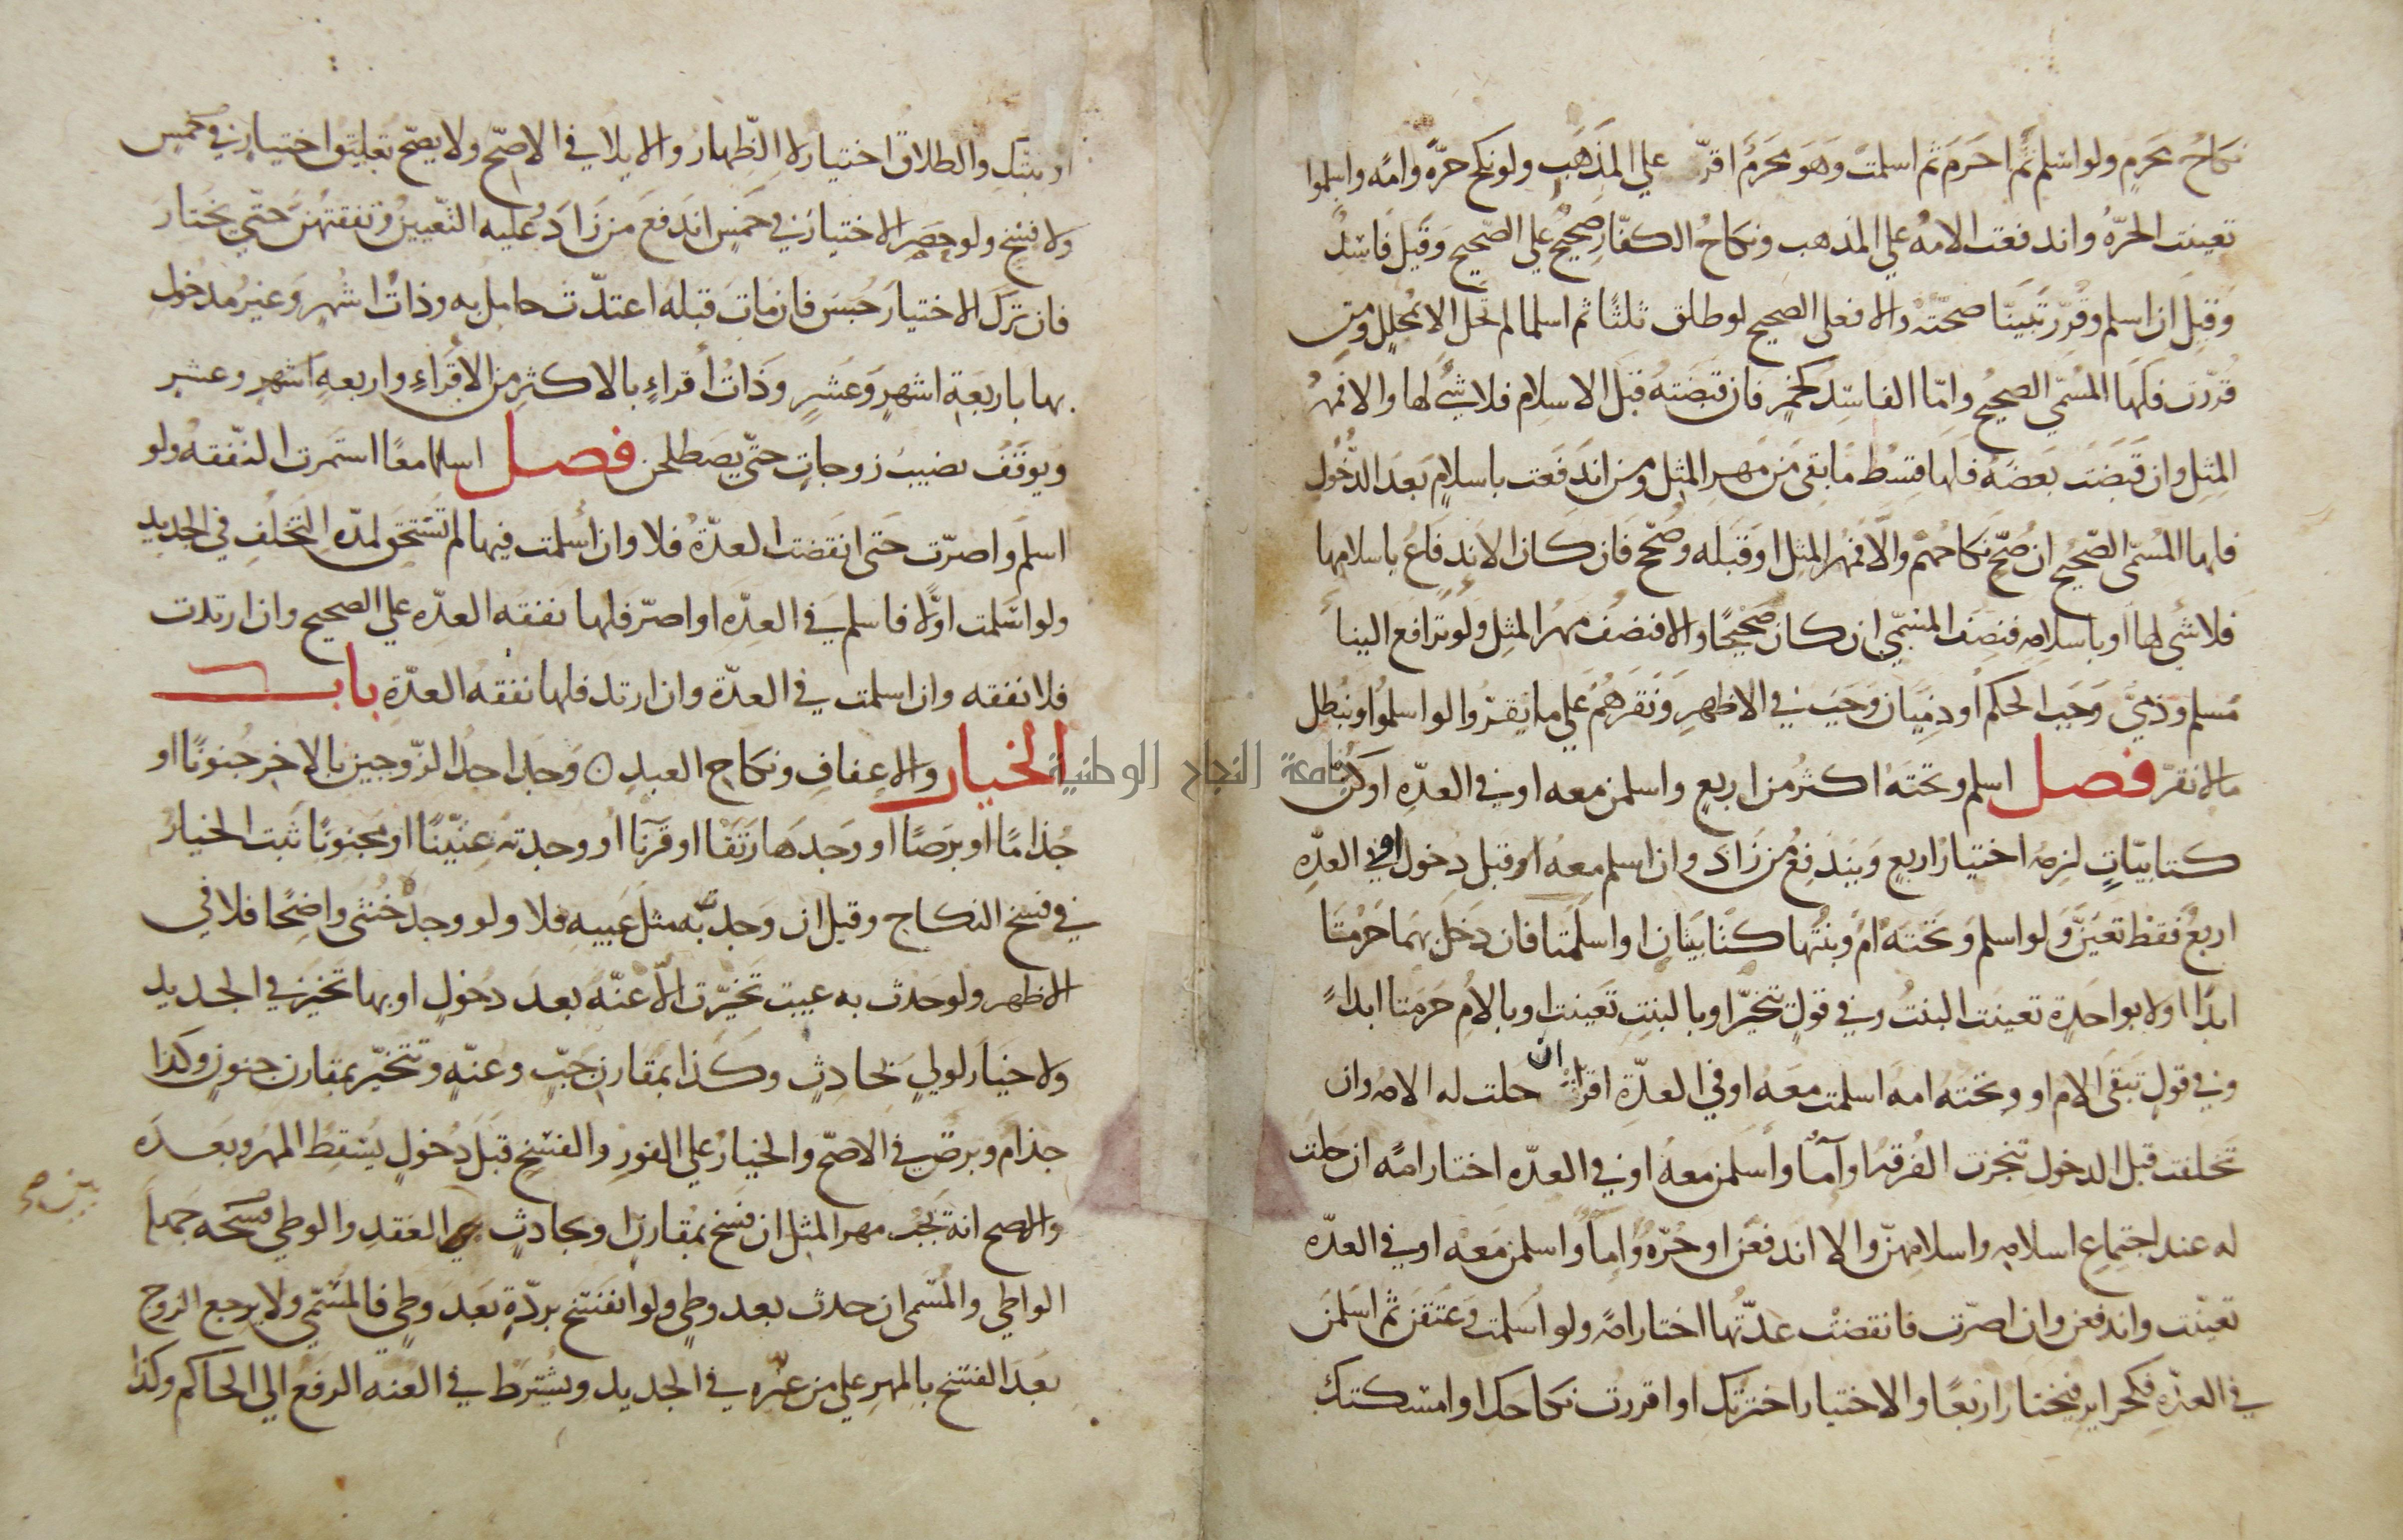 نكاحُ محرمٍ ولو اسلم ثم احرَمَ ثم اسلمت وهو محرمٌ اقرّ على المذهب ولو نكح حرّةً وامةً واسلموا
تعينت الحرّةُ واندفعت الامةُ على المذهب ونكاحُ الكفّار صحيحٌ على الصحيح وقيل فاسدٌ
وقيل ان اسلم وقُرّر تبينّا صحّته والا فعلى الصحيح لو طلق ثلثًا ثم اسلما لم تحل الا بمحللٍ ومن
قُررت فلها المسمّى الصحيحُ وامّا الفاسد كخمرٍ فان قبضته قبل الاسلام فلا شئ لها والا فمهرُ
المثل وان قبضت بعضه فلها قسط ما بقى من مهر المثل ومن اندفعت باسلامٍ بعد الدُّخُول
فلها المسمّى الصّحيحُ ان صُحّح نكاحهم والّا فمهرُ المثل او قبله وصُحّح فان كان الاندفاعُ باسلامها
فلا شئ لها او باسلامه فنصف المسمّى ان كان صحيحًا والا فنصفُ مهر المثل ولو ترافع الينا
مسلم وذميٌّ وجب الحكم او ذميّان وجب في الاظهر ونقرهُم على ما يقرُّوا لو اسلموا ونبطل
ما لا نقرّ فصل اسلم وتحته اكثرُ من اربعٍ واسلمن معه او في العدّه او كنّ
كتابيّاتٍ لزمه اختيارُ اربعٍ ويندفعُ من زاد وان اسلم معه او قبل دخول او في العدّه
اربعٌ فقط تعيّنّ ولو اسلم وتحته امٌ وبنتُها كتابيتان او اسلمتا فان دخل بهما حرُمتا
ابدًا او لا بواحدة تعينت البنتُ وفي قولٍ تتخيّر او بالبنت تعينت او بالأم حرمتا ابدًا
وفي قولٍ تبقى الام او وتحته امه اسلمت معه او في العدّة اقرّت ان حلت له الامه وان
تخلفت قبل الدخول تنجزت الفُرقة او آماءٌ واسلمن معه او في العدّه اختار امةً ان حلت
له عند اجتماع اسلامه واسلامهنّ والا اندفعن او حُرّةٌ واماءٌ واسلمن معه او في العدّه
تعينت واندفعن وان اصرّت فانقضت عدّتُها اختار امةً ولو اسلمت وعتقن ثم اسلمن
في العدّه فكحراير فيختار اربعًا والاختيار اخترتك او اقررت نكاحك او امسكتك
او ثبتك والطلاق اختيار لا الظِّهار والايلا في الاصّح ولا يصّح تعليق اختيار في خمس
ولا فسخ ولو حصر الاختيار في خمسٍ اندفع من زاد وعليه التّعيينُ ونفقتهُنّ حتّى يختار
فان ترك الاختيار حُبس فان مات قبله اعتدّت حامل به وذاتُ اشهر وغير مدخول
بها باربعة اشهرٍ وعشرٍ وذاتُ أقراءٍ بالاكثر من الأقراء واربعة اشهر وعشر
ويوقف نصيبُ زوجاتٍ حتّى يصطلحن فصل اسلما معًا استمرت النّفقه ولو
اسلم واصرّت حتى انقضت العدّة فلا وان اسلمت فيها لم تستحق لمدة التّخلف في الجديد
ولو اسلمت اولًا فاسلم في العدّه او اصرّ فلها نفقة العدّه على الصحيح وان ارتدت
فلا نفقه وان اسلمت في العدّة وان ارتد فلها نفقة العدّة باب
الخيار والاعفاف ونكاح العبد وجد احدُ الزّوجين بالاخر جنونًا او
جُذامًا او برصًا او وجدها رتقا او قرنًا او وجدته عنيّنًا او مجنونًا ثبت الخيارُ
في فسخ النكاح وقيل ان وجد به مثل عيبه فلا ولو وجدهُ خُنثى واضحًا فلا في
الاظهر ولو حدث به عيب تخيّرت الّا عنّة بعد دخولٍ او بها تخيّر في الجديد
ولا خيار لوليٍ بحادثٍ وكذا بمقارن جبٍّ وعنّةٍ ويتخيّر بمقارن جنونٍ وكذا
جذام وبرصٌ في الاصّح والخيار على الفور والفسخ قبل دُخولٍ يُسقط المهر وبعده
والاصح انه يجبُ مهر المثل ان فسخ بمقارنٍ او بحادثٍ بين العقد والوطي جهله
الواطي والمسمى ان حدث بعد وطي ولو انفسخ بردّةٍ بعد وطي فالمسمّى ولا يرجع الزوج
بعد الفسخ بالمهر على من غرّه في الجديد ويُشترط في العنه الرفع الى الحاكم وكذا
جامعة النجاح الوطنية